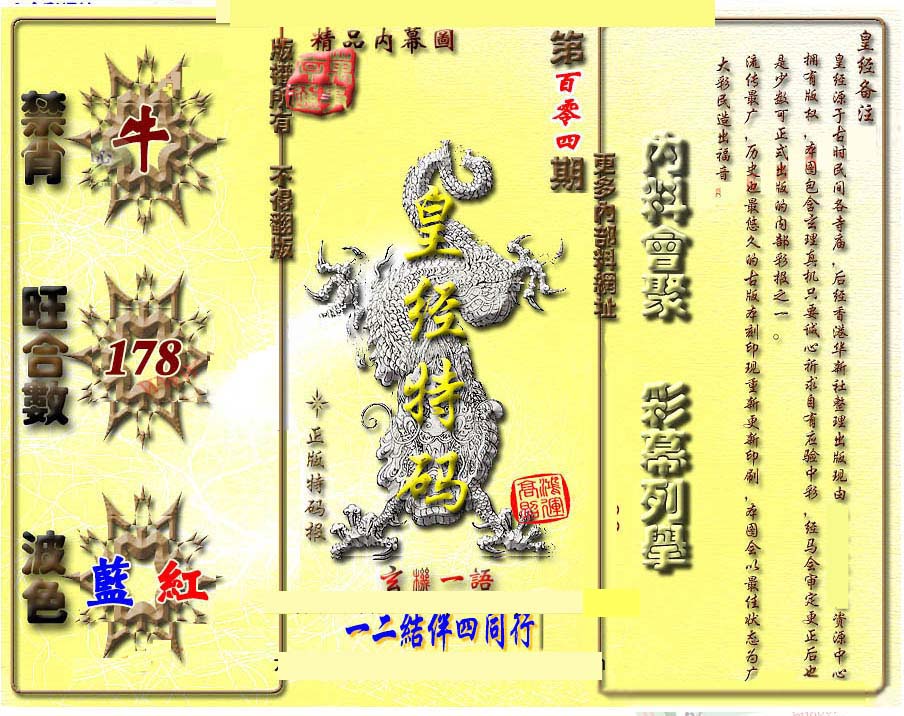 精品内幕圖
第百零四期
版權所有 不得翻版
更多内部料網址
禁肖
牛
旺合數
178
波色
藍 紅
皇经特码
正版特码报
鴻運高照
玄機一語
一二結伴四同行
内料會聚 彩幕列舉
皇经备注
皇经源于古时民间各寺庙,后经香港华新社整理出版现由
资源中心
拥有版权,本图包含玄理真机只要诚心祈求自有应验中彩,经马会审定更正后也
是少数可正式出版的内部彩报之一。
流传最广,历史也最悠久的古版本刻印现重新更新印刷,本图会以最佳状态为广
大彩民造出福音